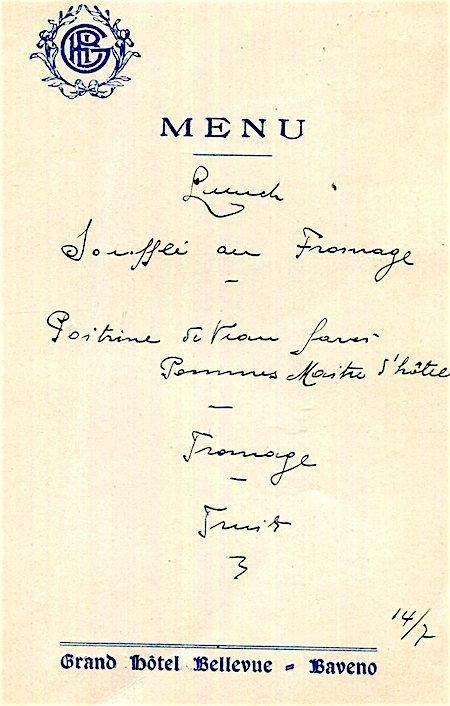 GHB
MENU
Lunch
Soufflé au Fromage
Poitrine de Veau farci
Pommes Maitre d'hôtel
Fromage
Fruits
14/7
Grand Hôtel Bellevue - Baveno